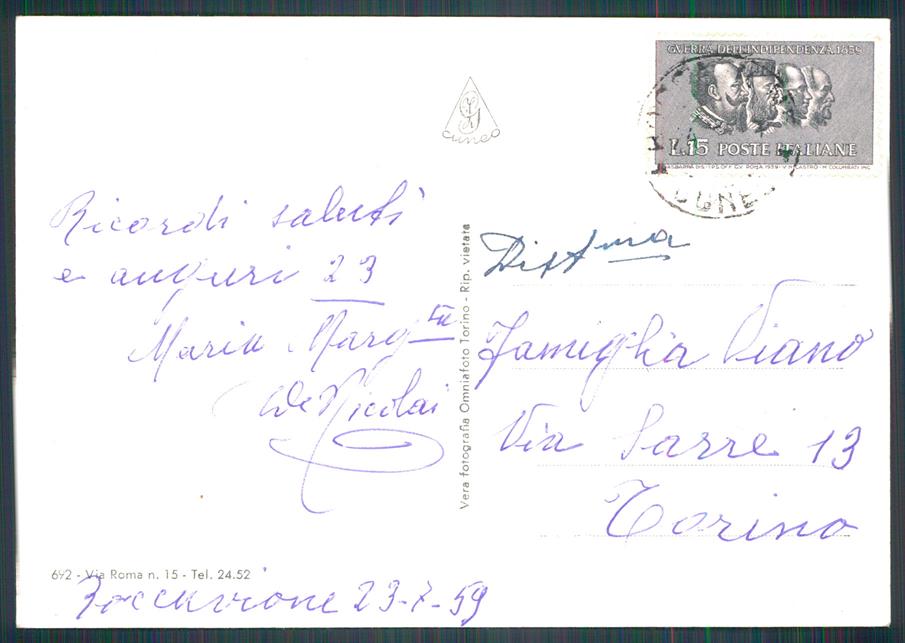 GVERRA DELL'INDIPENDENZA 1859
L.15 POSTE ITALIANE
CUNEO
Ricordi saluti
e auguri 23
Maria Marg
De Nicolai
Vera fotografia Omniafoto Torino - Rip. vietata
Famiglia Viano
Via Sarre 13
Torino
692 - Via Roma n. 15 - Tel. 24.52
23-7-59